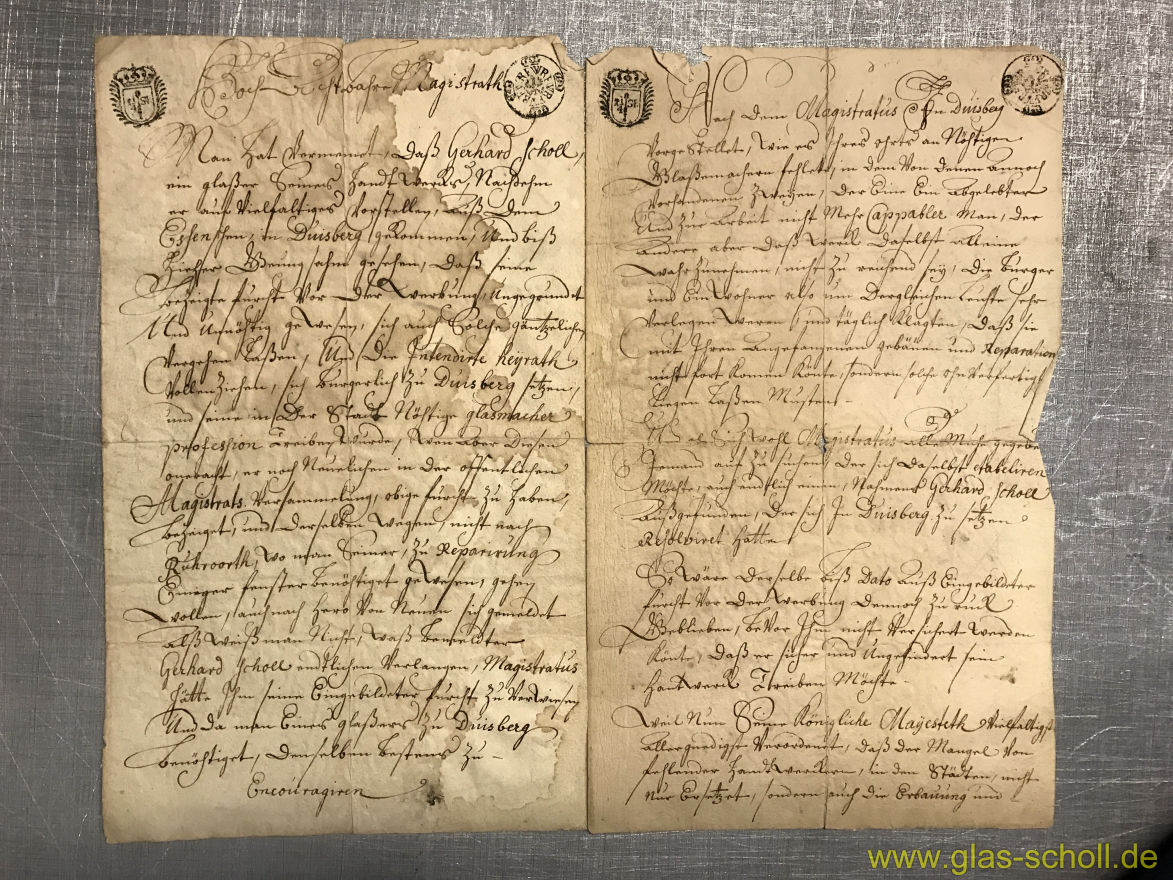 Hoch Achtbahre Magistrath
Man hat vermeint, daß Gerhard Scholl,
ein glaßer Seines Handtwercks, Nachdehm
er auf Vielfaltiges Vorstellen, auß dem
Essenschen, in Duisberg gekommen, Und biß
hiehher genungsahm gesehen, daß seine
bezeigte furcht Vor der Werbung, Ungegrundet
Und Unnöthig gewesen, sich auch Solche gäntzlichen
Vergehen laßen, Und die Intendirte Heyrath
Vollenziehen, sich bürgerlich zu Duisberg setzen,
und seine in der Stadt Nöhtige glasmacher
profession treiben würde, Wen aber dieser
ohnbacht, er noch Neuerlichen in der öffentlichen
Magistrats Versammelung, obige furcht zu haben,
bezeiget, und derselben wegen, nicht nach
Ruhroorth, wo man Seiner, zu Reparirung
Einiger fenster benöhtiget gewesen, gehen
wollen, auch nach hero Von Neuen sich gemeldet
Alß weiß man Nicht, waß bemeldter
Gerhard Scholl endtlichen Verlangen, Magistratus
hätte Ihm seine Eingebildete furcht zu Verwiesen
Und da man Eines glaßers zu Duisberg
benöhtiget, denselben bestens zu
Encouragiren
Nach dem Magistratus In Duisberg
Vorgestellet, wie es Ihres ohrts an Nöhtigen
Glaßemachern fehlete, in dem Von denen annoch
Vorhandenen Zweyen, der Eine Ein abgelebter
Und zur Arbeit nicht Mehr Cappabler Man, der
Andere aber daß Werck daselbst alleine
wahrzunehmen, nicht zu reichend sey, die bürger
und Einwohner also um dergleichen Leuthe sehr
Verlegen weren, und täglich klagten, daß sie
mit Ihren angefangenen gebäuen und Reparation
nicht fort komen könte, sondern solche ohn Verfertigt
liegen laßen Müsten
Und ob Sich wohl Magistratus alle Mühe gegeben
Jemand auf zu suchen, der sich daselbst etabeliren
Möchte, auch endtlich einen, Nahmens Gerhard Scholl
Außgefunden, der sich In Duisberg zu setzen
Resolviret hatte
So wäre derselbe biß Dato auß Eingebildeter
furcht Vor der Werbung dennoch zu rück
Geblieben, bevor Ihm nicht Versichert werden
könte, daß er sicher und Ungehindert sein
Hantwerck Treiben Möchte
Weil Nun Seine Königliche Mayesteth Vielfaltigst
Allergnedigst Verordenet, daß der Mangel Von
fehlender Handtwerckern, in den Städten, nicht
Nur Ersetzet, sondern auch die Erbauung und
www.glas-scholl.de